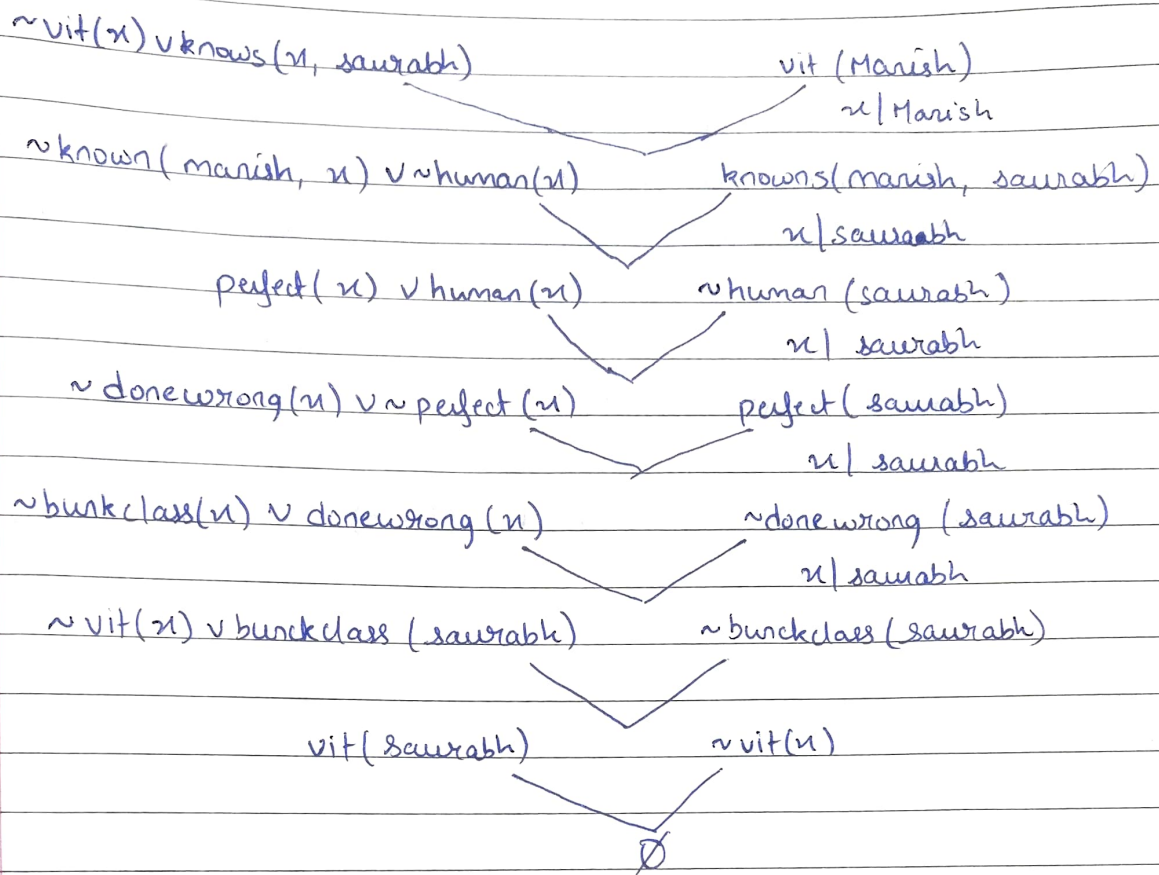 ~vit(x) v knows(x, saurabh) vit (Manish)
x/Manish
~known(manish, x) v ~human(x) knowns(manish, saurabh)
x/saurabh
perfect(x) v human(x) ~human (saurabh)
x/ saurabh
~donewrong(x) v ~perfect(x) perfect(saurabh)
x/ saurabh
~bunkclass(x) v donewrong(x) ~donewrong (saurabh)
x/saurabh
~vit(x) v bunckclass (saurabh) ~bunckclass(saurabh)
vit(saurabh) ~vit(x)
∅